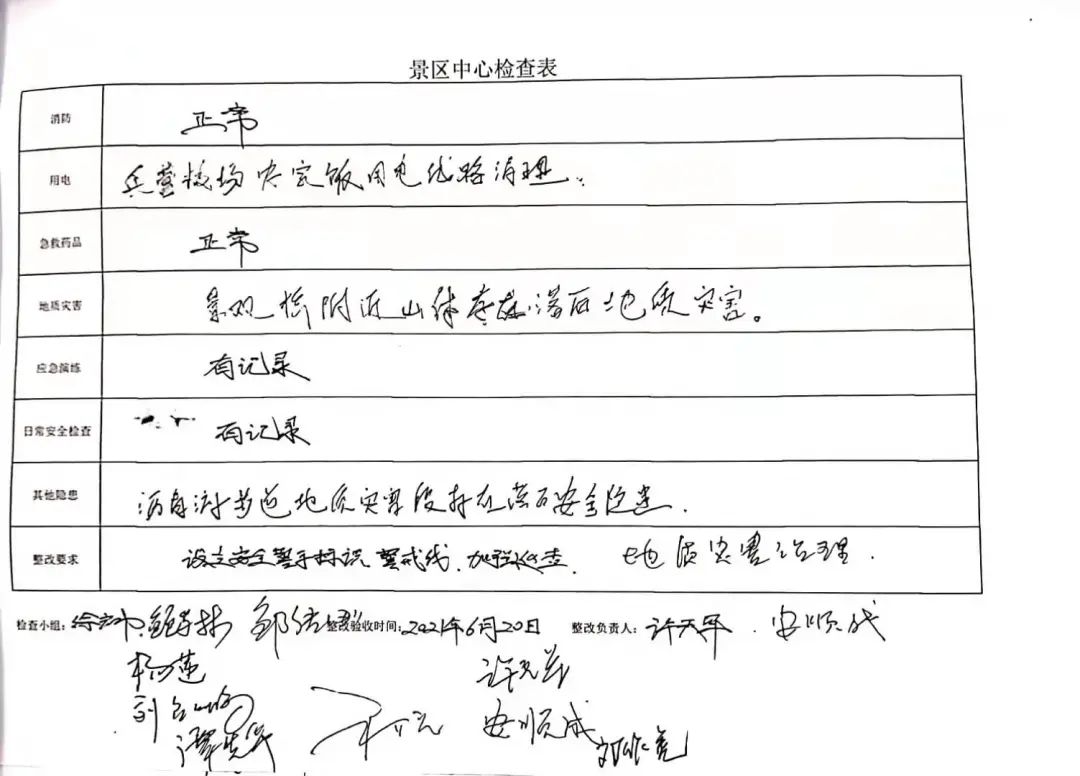 景区中心检查表
消防 正常
用电 兵营校场农家饭用电线路清理。
急救药品 正常
地质灾害 景观桥附近山体存在落石地质灾害。
应急演练 有记录
日常安全检查 有记录
其他隐患 游步道地质灾害段存在落石安全隐患.
整改要求 设立安全警示标识 警戒线. 加强巡查. 地质灾害治理.
检查小组: 整改验收时间: 2021年6月20日 整改负责人: 许天军. 安顺成
杨 莲
安顺成